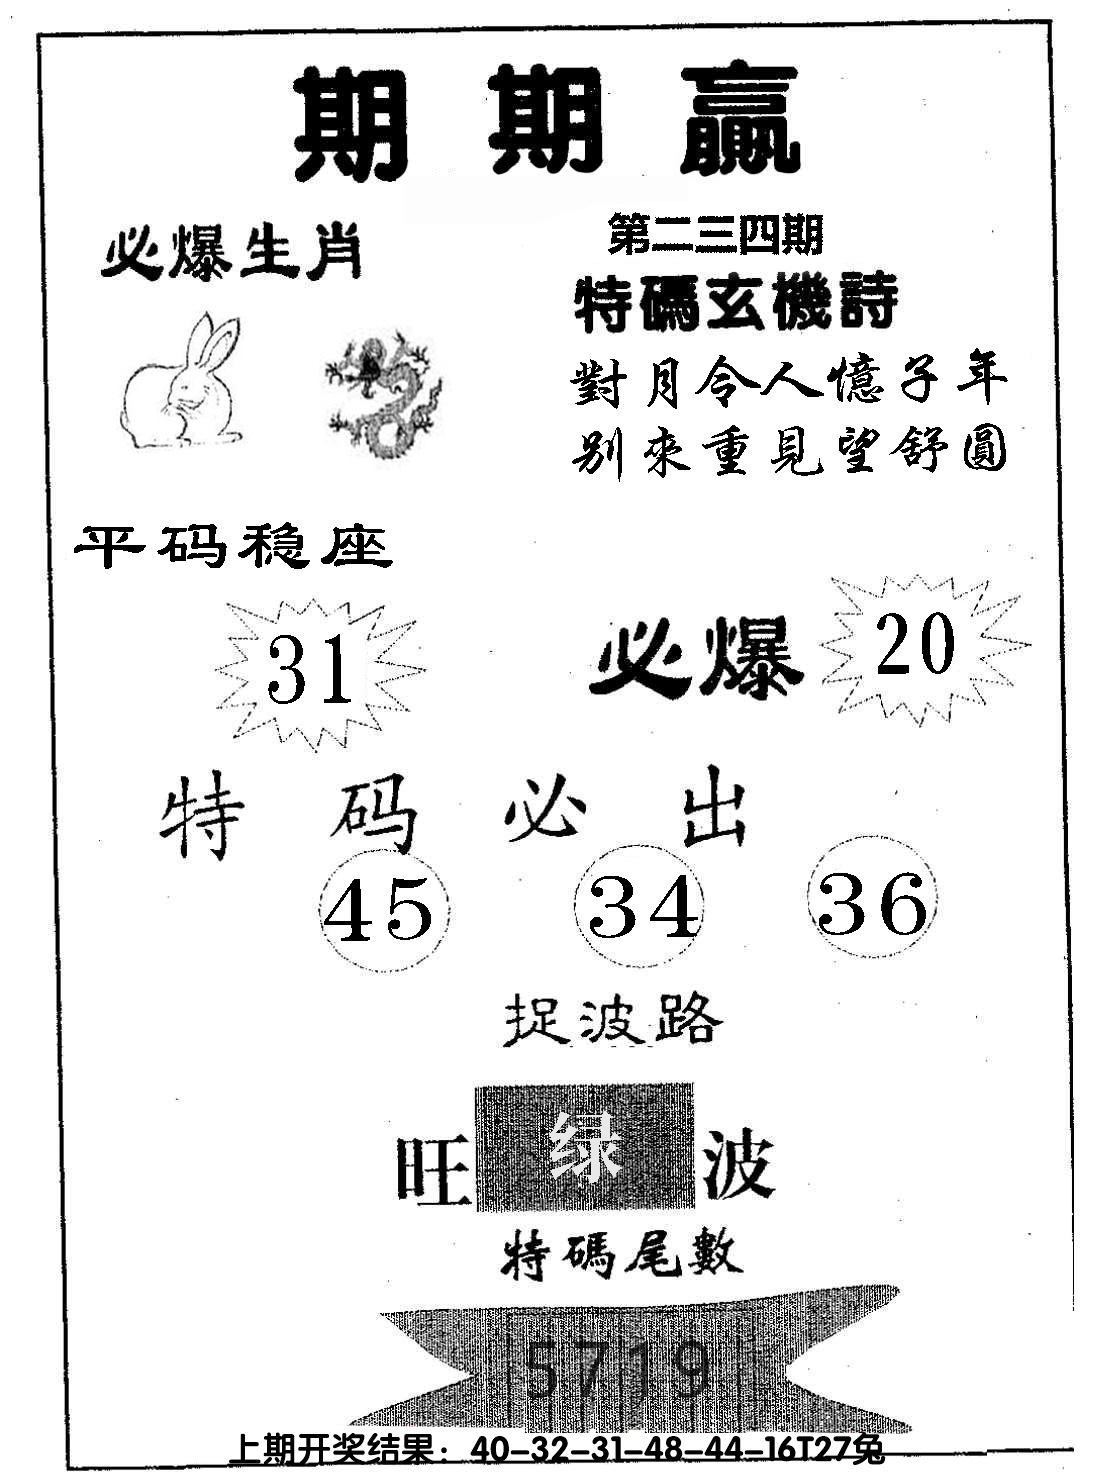 期期贏
必爆生肖
第二三四期
特碼玄機詩
對月令人憶子年
别來重見望舒圓
平码稳座
31
必爆
20
特码必出
45 34 36
捉波路
旺绿波
特碼尾數
5719
上期开奖结果：40-32-31-48-44-16T27兔